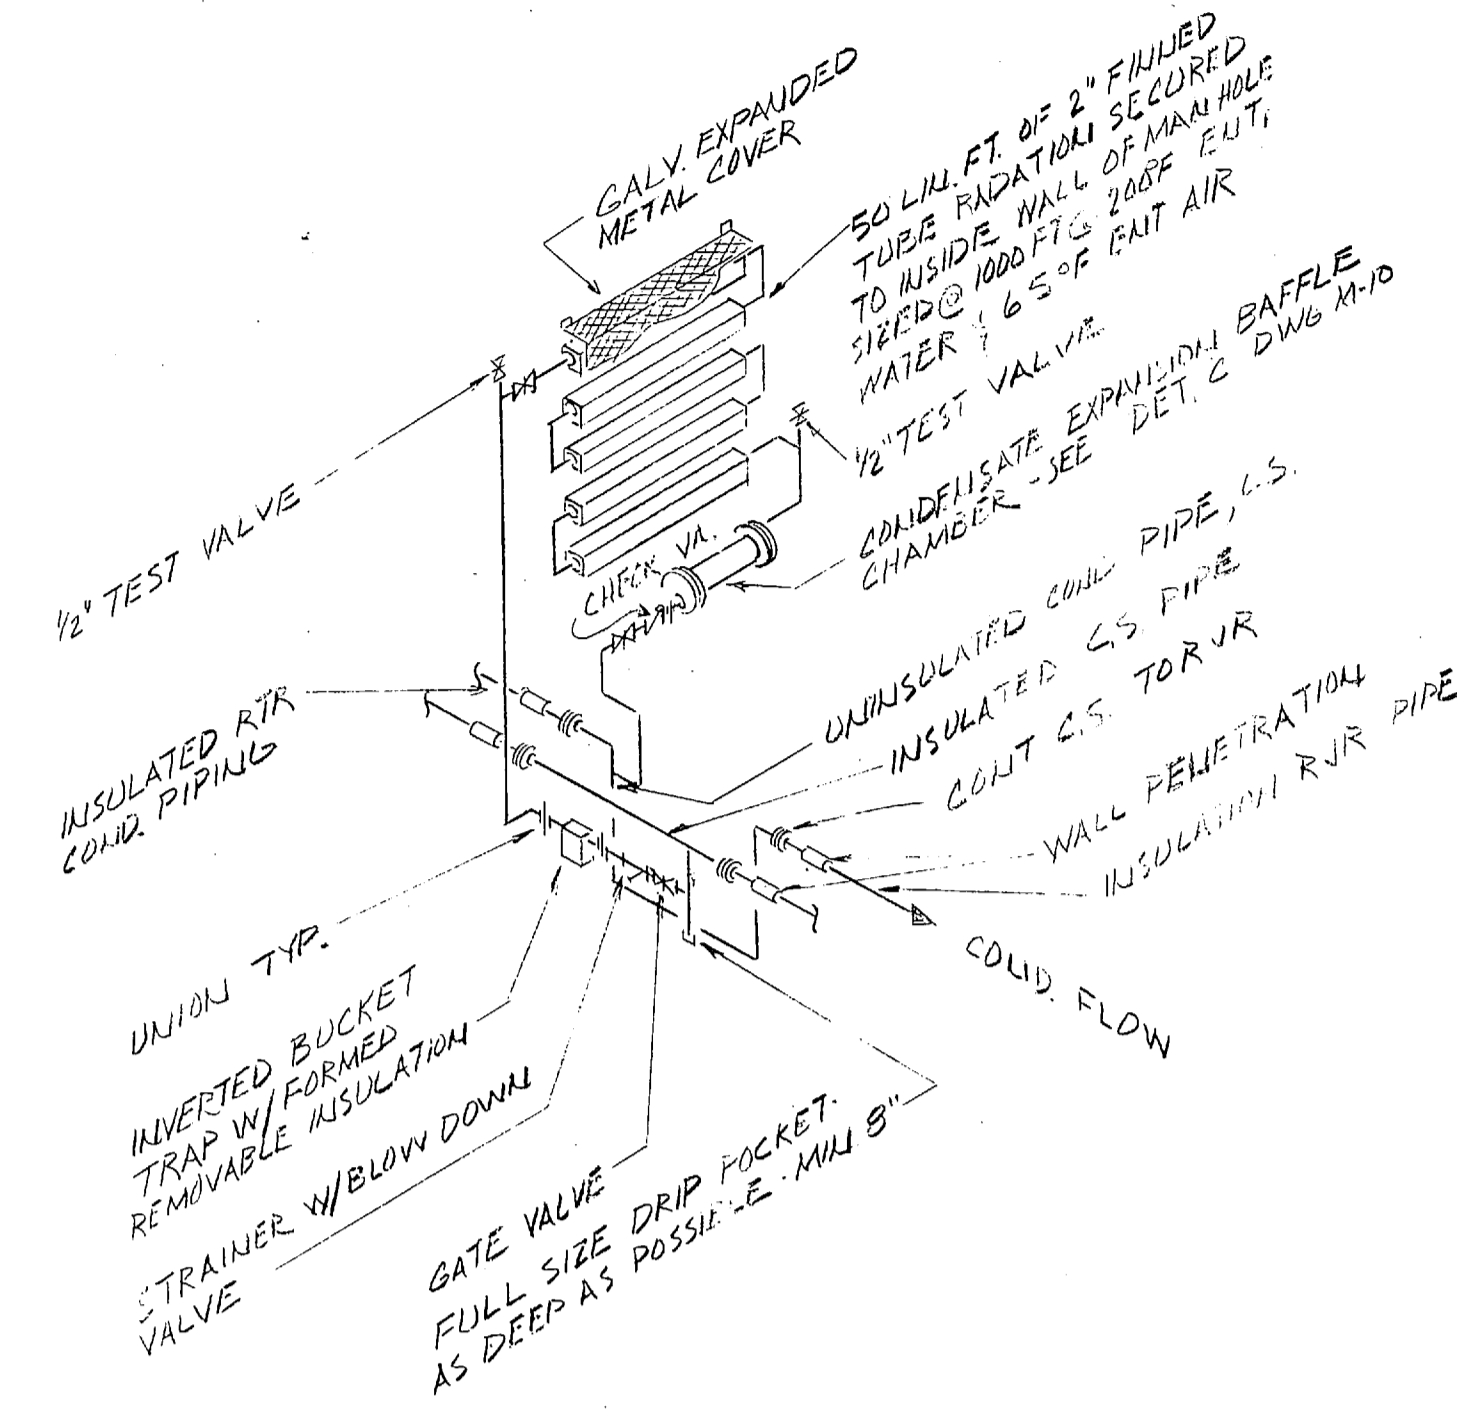 GALV. EXPANDED
METAL COVER
50 LIN. FT. OF 2" FINNED
TUBE RADATION SECURED
TO INSIDE WALL OF MAN HOLE
SIZED @ 1000 FT @ 200°F ENT.
WATER & 65°F ENT AIR
1/2" TEST VALVE
CONDENSATE EXPANSION BAFFLE
CHAMBER - SEE DET. C DWG M-10
1/2" TEST VALVE
CHECK VA.
UNINSULATED COND PIPE, C.S.
INSULATED C.S. PIPE
INSULATED RTR
COND. PIPING
CONT C.S. TO
WALL PENETRATION
INSULATION PIPE
COND. FLOW
UNION TYP.
INVERTED BUCKET
TRAP W/FORMED
REMOVABLE INSULATION
STRAINER W/BLOW DOWN
VALVE
GATE VALVE
FULL SIZE DRIP POCKET.
AS DEEP AS POSSIBLE. MIN 8"